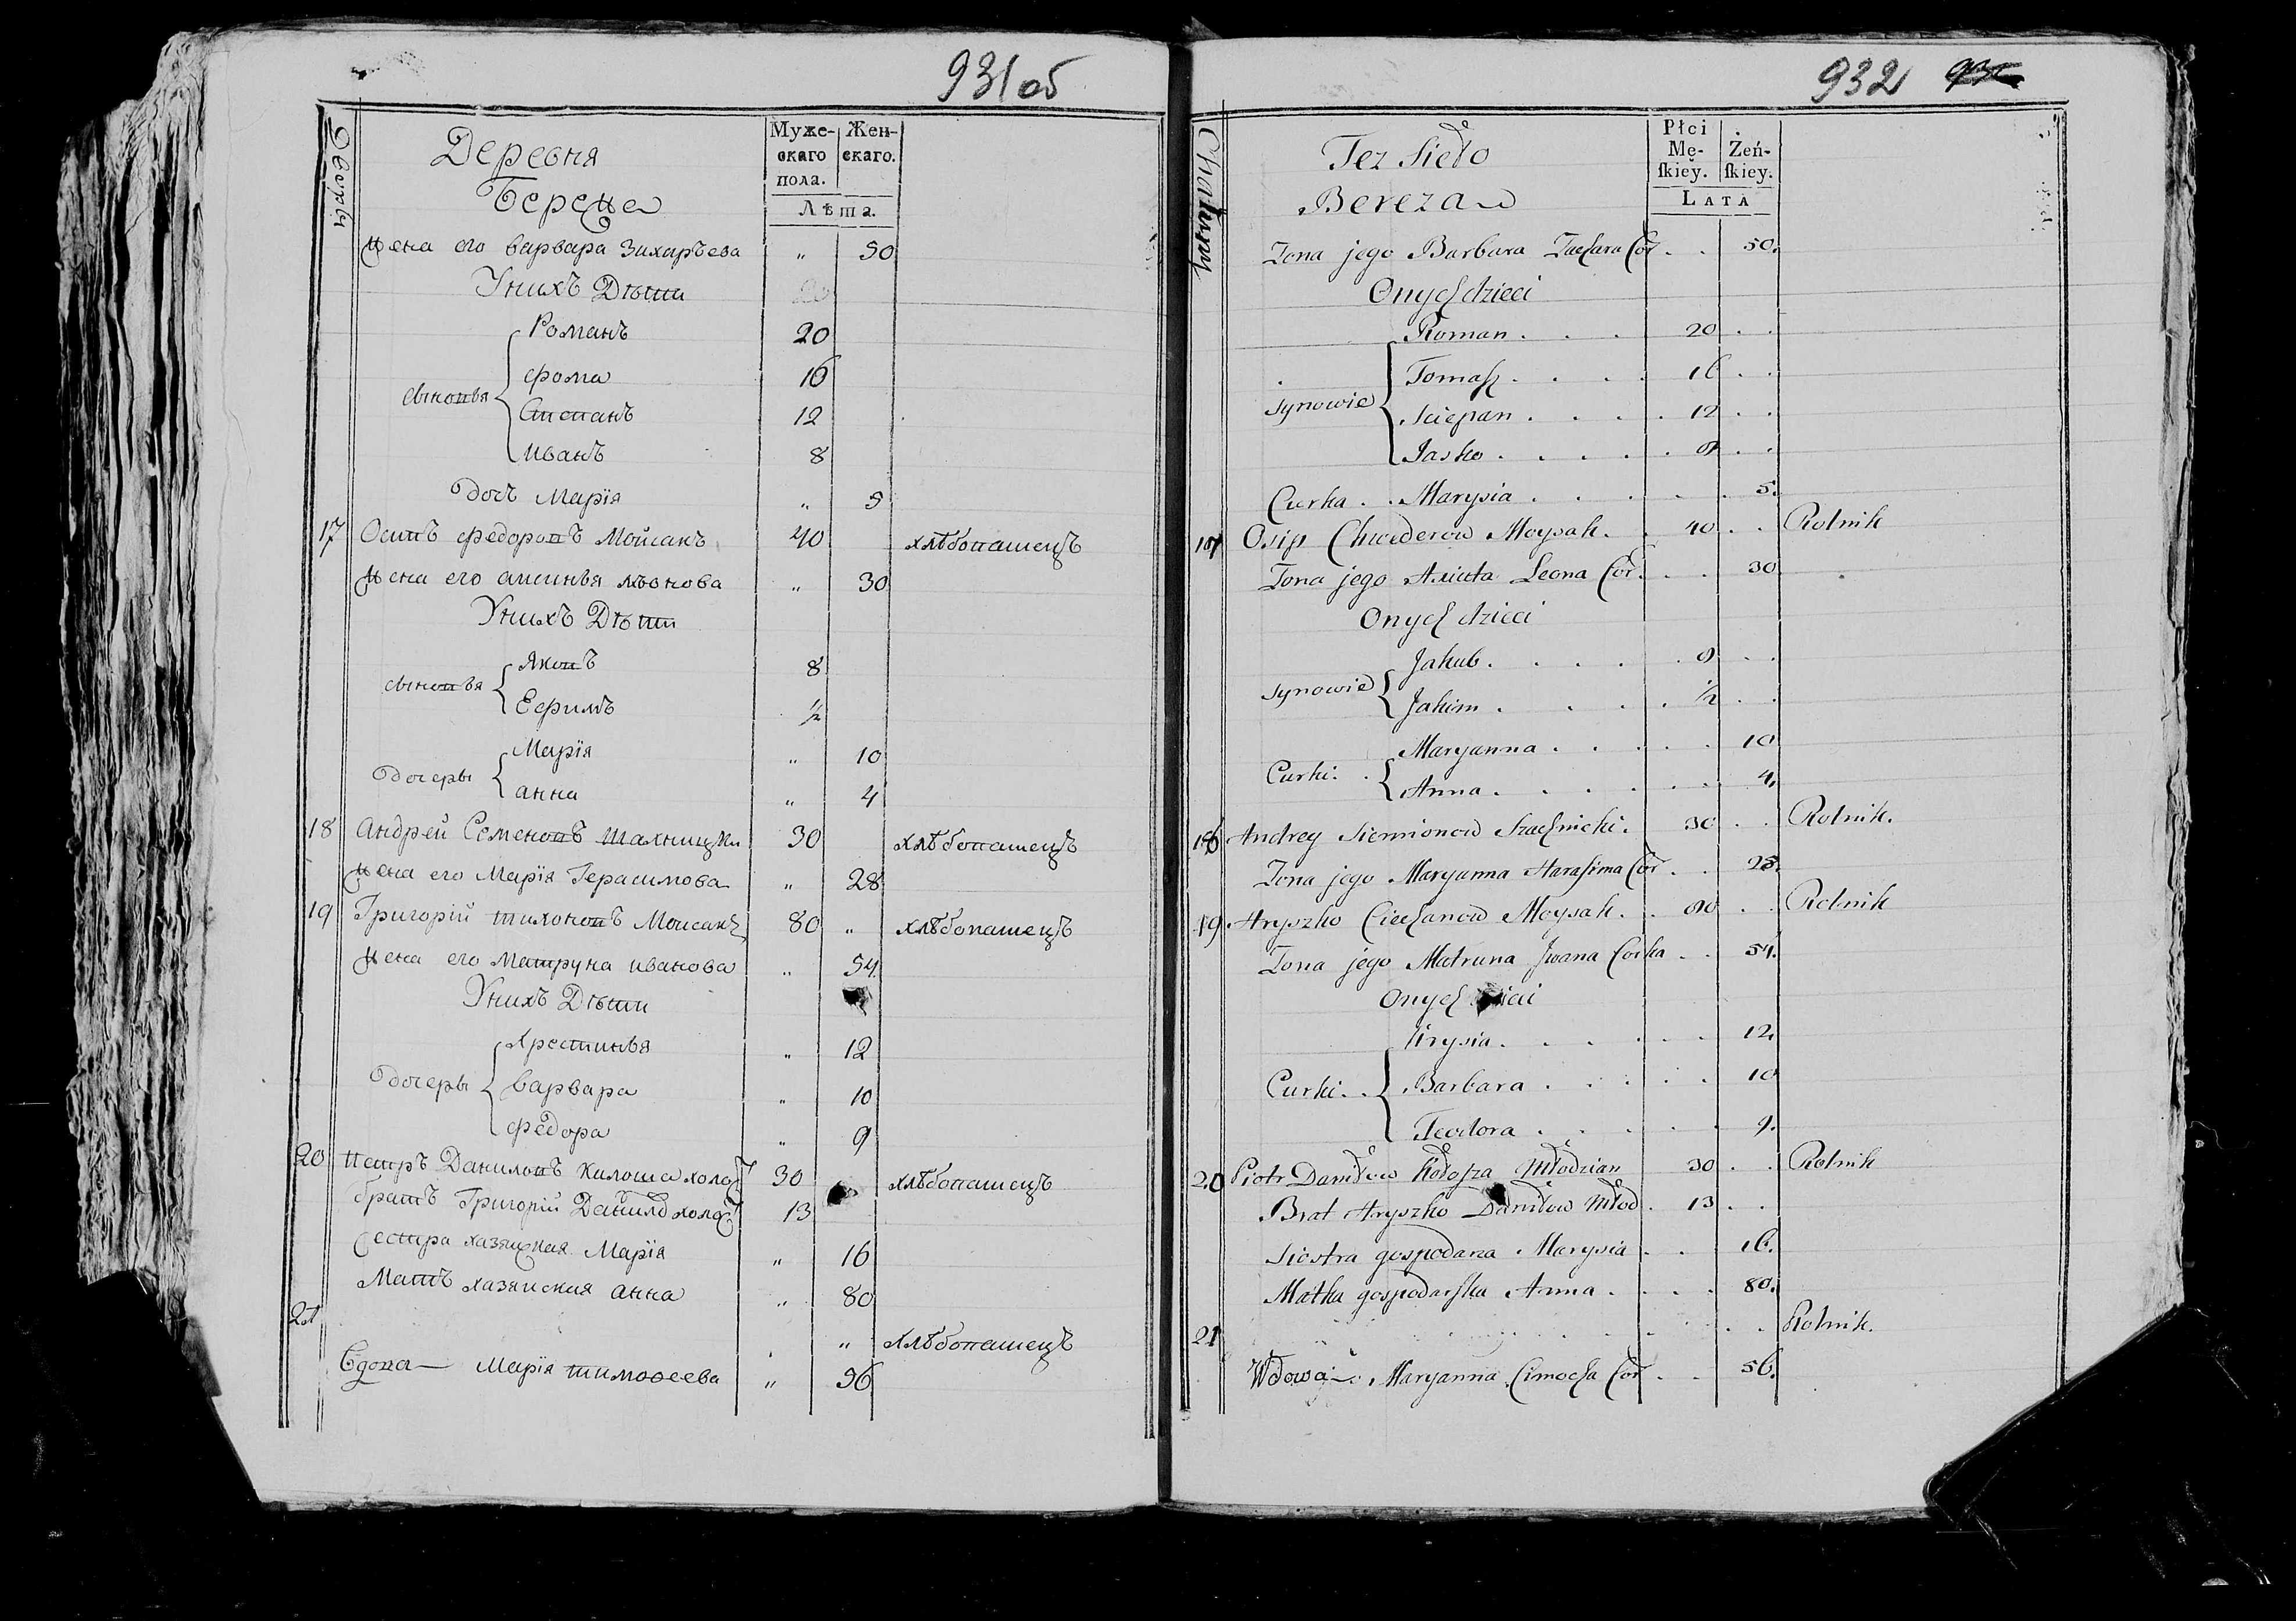 931 об
Дворы
Деревня
Береже
Муже-
скаго
пола.
Жен-
скаго.
Лѣта.
жена его варвара Захарьева " 50
Унихъ Дѣти
Романъ 20
фома 16
сыновья
Степанъ 12
Иванъ 8
Дочь Марія " 5
17 Осипъ федоровъ Мойсакъ 40 хлѣбопашецъ
жена его аксинья львова " 30
Унихъ Дѣти
Яковъ 8
сыновья
Ефимъ ½
Марія " 10
Дочеры
анна " 4
18 Андрей Семеновъ Шахницки 30 хлѣбопашецъ
жена его Марія Герасимова " 28
19 Григорій тихоновъ Моисакъ 80 " хлѣбопашецъ
жена его Матруна иванова " 54
Унихъ Дѣти
Хрестинья " 12
Дочеры варвара " 10
федора " 9
20 Петръ Даниловъ Килоша холос 30 хлѣбопашецъ
братъ Григорій Данило холос 13
Сестра хазяйская Марія " 16
Мать хазяйская анна " 80
21 " хлѣбопашецъ
Вдова — Марія тимофеева " 56
932
Chałupy
Tez Sieło
Bereza
Płci
Mę-
ſkiey.
Żeń-
ſkiey.
LATA
Zona jego Barbara Zachara Cor . . 50.
Onych dzieci
Roman . . . 20 . .
Tomaſz . . . . 16 . .
Synowie
Sciepan . . . . 12 . .
Jasko . . . . . 8 . .
Curka . . Marysia . . . . . . 5.
17 Osip Chwederow Moysak . . 40 . . Rolnik
Zona jego Axiuta Leona Cor . . . 30
Onych dzieci
Jakub . . . . . 8 . .
Synowie
Jakim . . . . . ½ . .
Maryanna . . . . . 10
Curki . .
Anna . . . . . . . 4.
18 Andrey Siemionow Szachnicki . 30 . . Rolnik.
Zona jego Maryanna Haraſima Cor . . 28.
19 Hryszko Ciechanow Moysak . . 80 . . Rolnik
Zona jego Matruna Jwana Corka . . 54.
Onych dzieci
Krysia . . . . . . . 12.
Curki . . Barbara . . . . . 10
Teodora . . . . . 9.
20 Piotr Daniłow Kołoſza Młodzian 30 . . Rolnik
Brat Hryszko Daniłow Młod . 13 . .
Siostra gospodarza Marysia . . . 16.
Matka gospodarſka Anna . . . . 80.
21 Rolnik.
Wdowa — Maryanna Cimocha Cor . . 56.